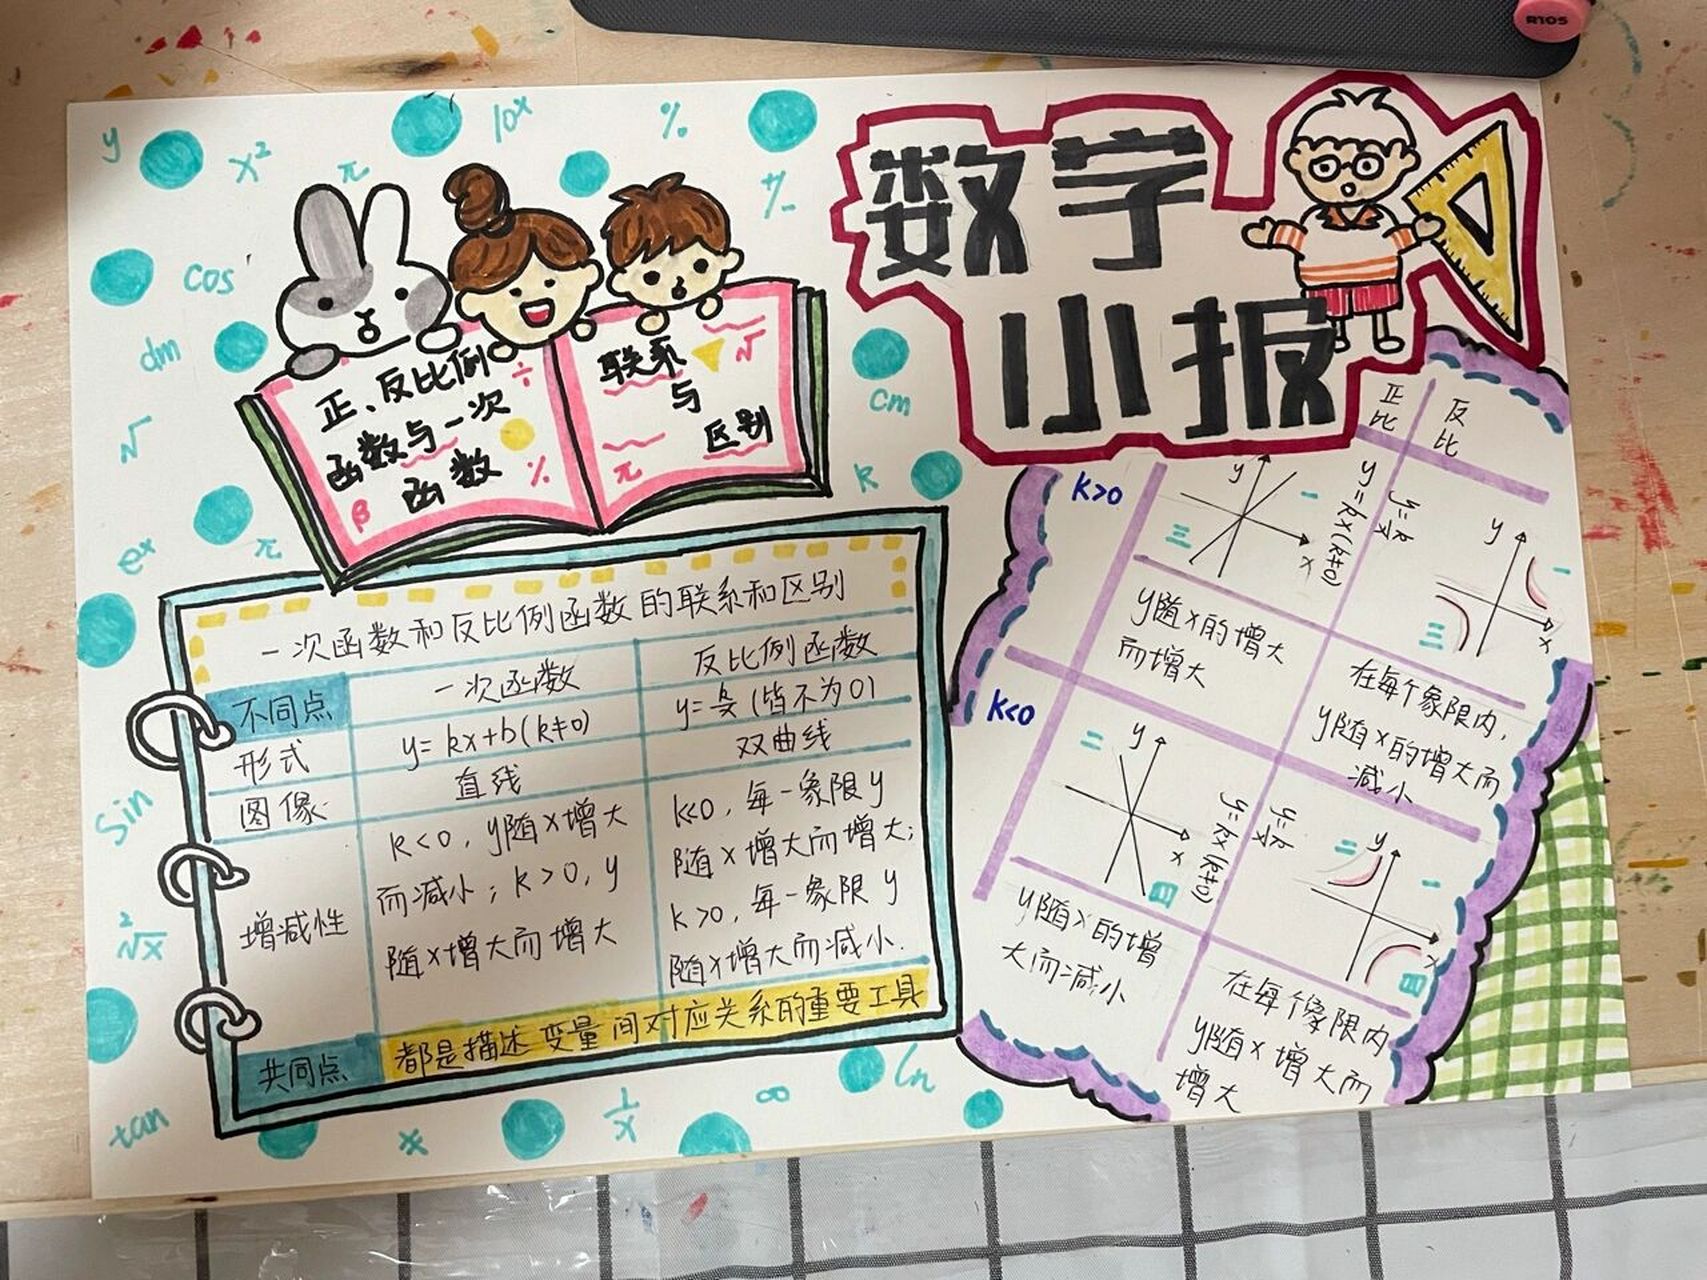 R105
y
x²
π
10x
%
÷
cos
dm
√
ex
π
cm
k
数学
小报
正、反比例
函数与一次
函数
÷
%
β
联系
与
区别
√
π
一次函数和反比例函数的联系和区别
不同点
一次函数
反比例函数
形式
y=kx+b(k≠0)
y=k/x(皆不为0)
图像
直线
双曲线
增减性
k<0,y随x增大
而减小;k>0,y
随x增大而增大
k<0,每一象限y
随x增大而增大;
k>0,每一象限y
随x增大而减小.
共同点
都是描述变量间对应关系的重要工具
正比
反比
k>0
y=kx(k≠0)
y=k/x
y
x
一
三
y
x
一
三
y随x的增大
而增大
在每个象限内,
y随x的增大而
减小
k<0
y=kx(k≠0)
y=k/x
二
y
x
四
二
y
一
x
四
y随x的增
大而减小
在每个像限内
y随x增大而
增大
sin
²√x
tan
1/x
∞
ln